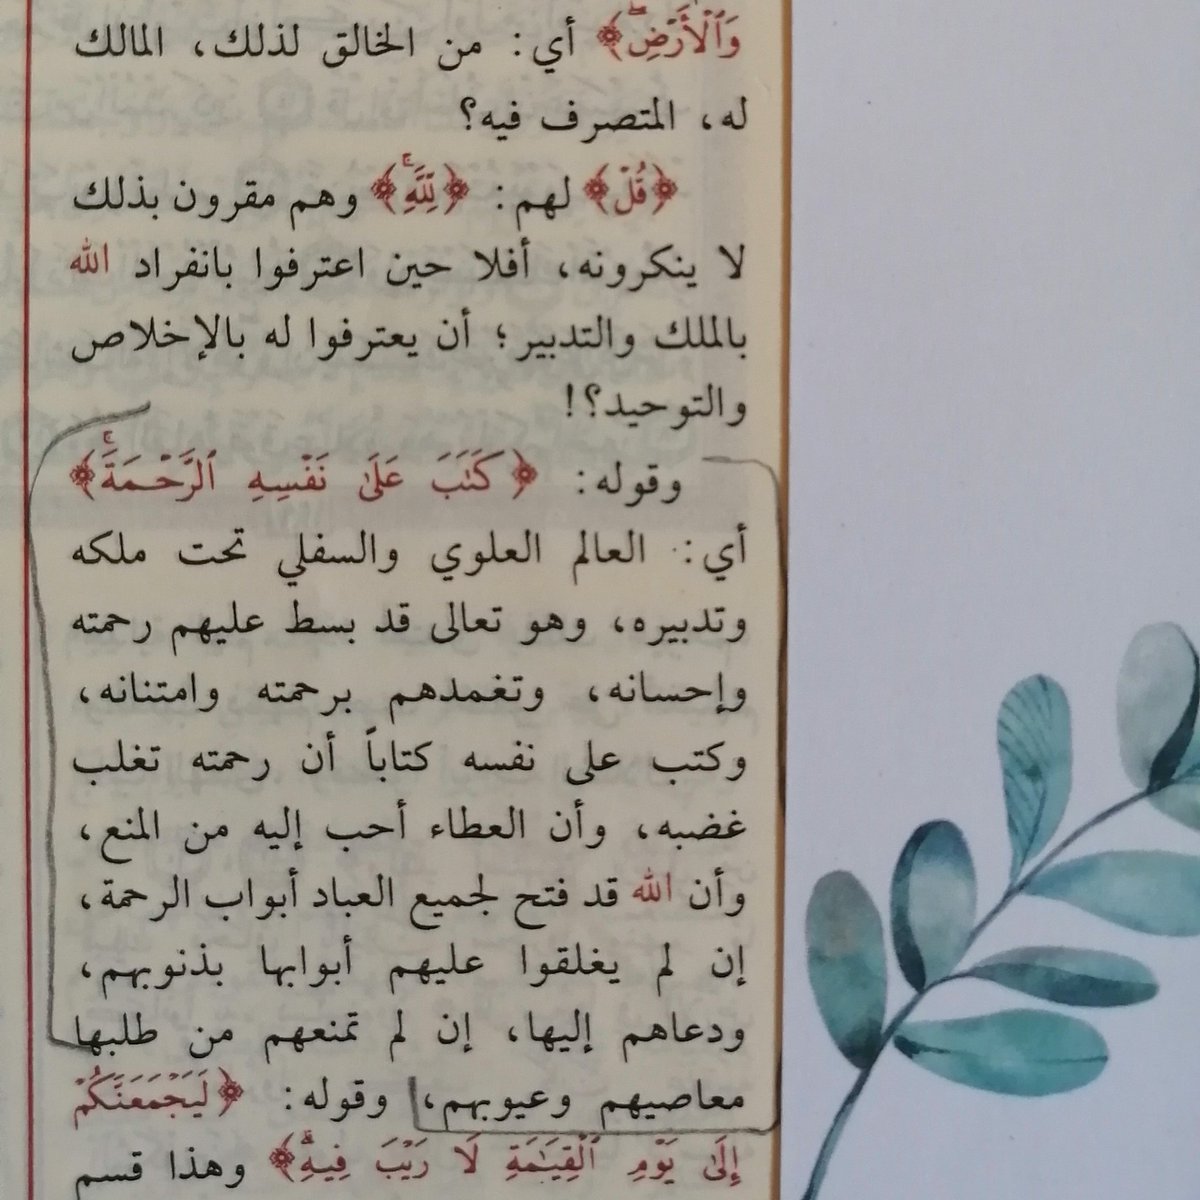 وَٱلۡأَرۡضِۖ﴾ أي: من الخالق لذلك، المالك
له، المتصرف فيه؟
﴿قُل﴾ لهم: ﴿لِّلَّهِۚ﴾ وهم مقرون بذلك
لا ينكرونه، أفلا حين اعترفوا بانفراد الله
بالملك والتدبير؛ أن يعترفوا له بالإخلاص
والتوحيد؟!
وقوله: ﴿كَتَبَ عَلَىٰ نَفۡسِهِ ٱلرَّحۡمَةَۚ﴾
أي: العالم العلوي والسفلي تحت ملكه
وتدبيره، وهو تعالى قد بسط عليهم رحمته
وإحسانه، وتغمدهم برحمته وامتنانه،
وكتب على نفسه كتاباً أن رحمته تغلب
غضبه، وأن العطاء أحب إليه من المنع،
وأن الله قد فتح لجميع العباد أبواب الرحمة،
إن لم يغلقوا عليهم أبوابها بذنوبهم،
ودعاهم إليها، إن لم تمنعهم من طلبها
معاصيهم وعيوبهم، وقوله: ﴿لَيَجۡمَعَنَّكُمۡ
إِلَىٰ يَوۡمِ ٱلۡقِيَٰمَةِ لَا رَيۡبَ فِيهِۚ﴾ وهذا قسم